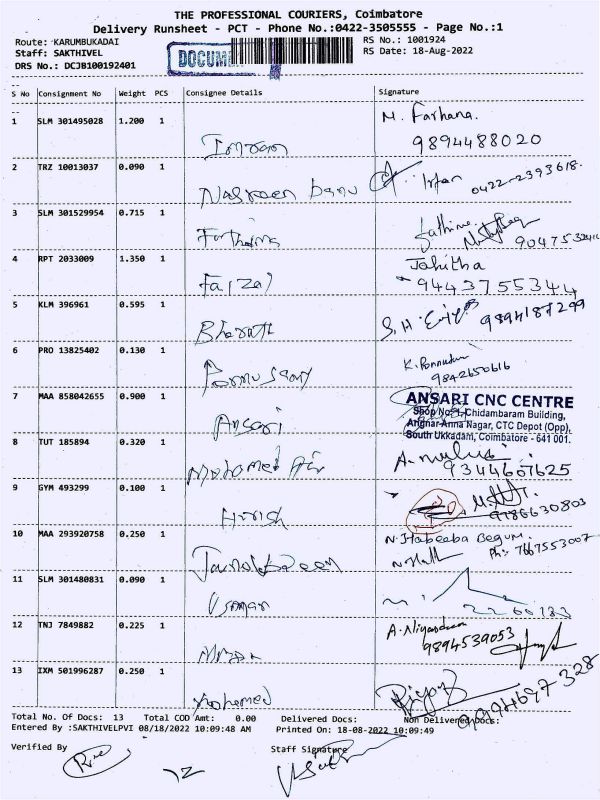 THE PROFESSIONAL COURIERS, Coimbatore
Delivery Runsheet - PCT - Phone No.:0422-3505555 - Page No.:1
Route: KARUMBUKADAI RS No.: 1001924
Staff: SAKTHIVEL RS Date: 18-Aug-2022
DRS No.: DCJB100192401
S No Consignment No Weight PCS Consignee Details Signature
1 SLM 301495028 1.200 1 Imran M. Farhana. 9894488020
2 TRZ 10013037 0.090 1 Nasreen banu Irfan 0422-2393618.
3 SLM 301529954 0.715 1 Fathima
4 RPT 2033009 1.350 1 Faizal Jahitha 9443755344
5 KLM 396961 0.595 1 Bharath S.H. 9894187299
6 PRO 13825402 0.130 1 Ponnusamy K. Ponnudurai 9842650616
7 MAA 858042655 0.900 1 Ansari ANSARI CNC CENTRE
Chidambaram Building,
Anna Nagar, CTC Depot (Opp).
South Ukkadam, Coimbatore - 641 001.
8 TUT 185894 0.320 1 Mohamed Ali 9344607625
9 GYM 493299 0.100 1 Harish 9786630803
10 MAA 293920758 0.250 1 N. Habeeba Begum. Ph: 7667553007
11 SLM 301480831 0.090 1 Usman
12 TNJ 7849882 0.225 1 9894539053
13 IXM 501996287 0.250 1 Mohamed 9994697328
Total No. Of Docs: 13 Total COD Amt: 0.00 Delivered Docs: Non Delivered Docs:
Entered By :SAKTHIVELPVI 08/18/2022 10:09:48 AM Printed On: 18-08-2022 10:09:49
Verified By Staff Signature
12